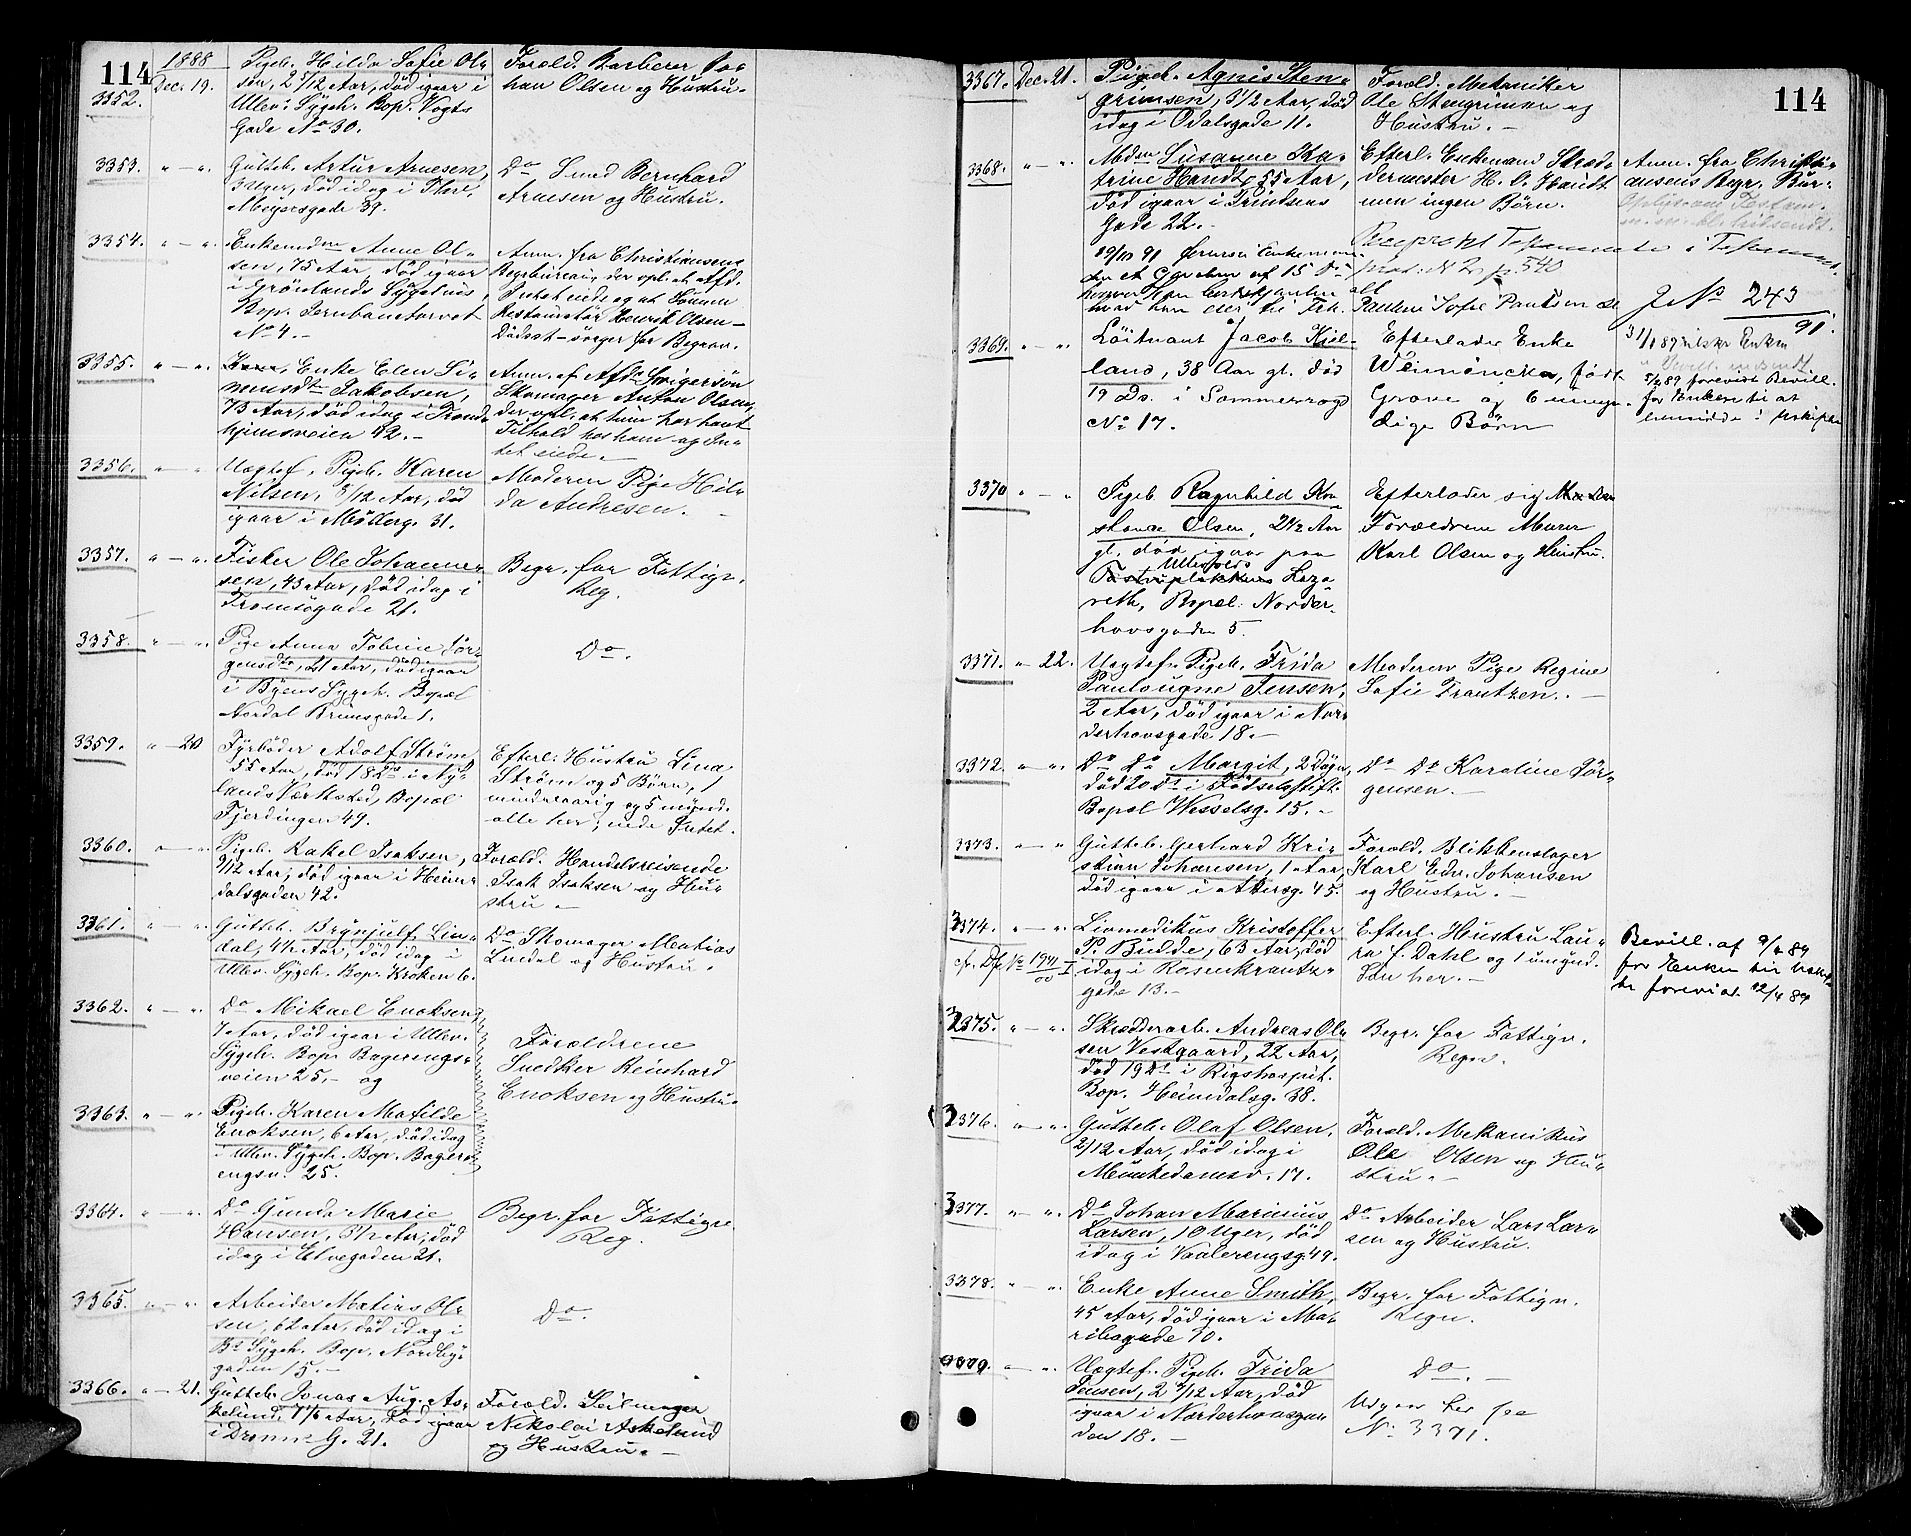 114
1888
3352. Dec. 19. Pigeb. Hilda Sofie Ol-
sen, 2 5/12 Aar, död igaar i
Ullev. Sygeh. Bop. Vogts
Gade No 30.
Foræld. Barberer Jo-
han Olsen og Hustru.
3353. " — ". Gutteb. Artur Arnesen,
3 Uger, död idag i Thorv.
Meyersgade 39.
Do Smed Bernhard
Arnesen og Hustru.
3354. " — ". Enkemdm Anne Ol-
sen, 75 Aar, död igaar
i Grönlands Sygehus,
Bop. Jernbanetorvet
No 4. —
Anm. fra Christiansens
Begr.bureau, der opl. at Afd.
Intet eiede og at Sönnen
Restauratör Henrik Olsen —
Dödsst. sörger for Begrav.
3355. " — ". Enke Elen Si-
monsdtr Jakobsen,
73 Aar, död idag i Trond-
hjemsveien 42. —
Anm. af Afds Svigersön
Skomager Anton Olsen,
der opl. at hun har havt
Tilhold hos ham og In-
tet eiede. —
3356. " — ". Uægtef. Pigeb. Karen
Nilsen, 5/12 Aar, död
igaar i Möllerg. 31.
Moderen Pige Hil-
da Andresen. —
3357. " — ". Fisker Ole Johanne-
sen, 43 Aar, död idag i
Tromsögade 21.
Begr. for Fattigv.
Reg.
3358. " — ". Pige Anna Tobine Jör-
gensdtr, 21 Aar, död igaar
i Byens Sygeh. Bopæl
Nordal Brunsgade 1.
Do.
3359. " — 20 Fyrböder Adolf Ström,
55 Aar, död 18 ds i Ny-
lands Værksted, Bopæl
Fjerdingen 49.
Efterl. Hustru Lina
Ström og 5 Börn, 1
mindreaarig og 5 mynd.
alle her, eiede Intet.
3360. " — ". Pigeb. Rakel Isaksen,
9/12 Aar, död igaar i Heim-
dalsgaden 42.
Foræld. Handelsreisende
Isak Isaksen og Hu-
stru —
3361. " — ". Gutteb. Brynjulf Lin-
dal, 4 1/2 Aar, död idag i
Ullev. Sygeh. Bop. Kroken 6.
Do Skomager Matias
Lindal og Hustru.
3362. " — ". Do Mikael Enoksen,
7 Aar, död igaar i Ullev.
Sygeh. Bop. Bagerengs-
veien 25, — og
Forældrene
Snedker Reinhard
Enoksen og Hustru.
3363. " — ". Pigeb. Karen Matilde
Enoksen, 6 Aar, död idag
i Ullev. Sygeh. Bop. Bager-
engsv. 25.
3364. " — ". Do Gunda Marie
Hansen, 3 1/2 Aar, död
idag i Elvegaden 21.
Begr. for Fattigv.
Reg.
3365. " — ". Arbeider Matias Ol-
sen, 62 Aar, död idag i
Bs Sygeh. Bop. Nordby-
gaden 15. —
Do.
3366. " — 21. Gutteb. Jonas Aug. As-
kelund, 7 1/6 Aar, död igaar
i Dronn. G. 21.
Foræld. Seilmager
Nikolai Askelund
og Hustru. —
114
3367. Dec. 21. Pigeb. Agnis Sten-
grimsen, 3 1/2 Aar, död
idag i Odalsgade 11.
Foræld. Mekaniker
Ole Stengrimsen og
Hustru. —
3368. " — ". Mdm Susanne Ka-
trine Handt, 55 Aar,
död igaar i Prindsens
Gade 22. —
Efterl. Enkemand Skræd-
dermester H. O. Handt
men ingen Börn.
Anm. fra Christi-
ansens Begr. Bur.
J No 243
91.
3369. " — ". Löitnant Jacob Kiel-
land, 38 Aar gl. död
19 Ds. i Sommerrogd
No 17.
Efterlader Enke
født
Grove og 6 umyn-
dige Börn
5/4 89 forevist Bevill.
for Enken til at
3370 " — " Pigeb. Ragnhild Kon-
stance Olsen, 2 1/2 Aar
gl. död igaar paa
Ullevolds
Laza-
reth, Bopæl: Norder-
hovsgaden 5.
Efterlader sig
Forældrene Murer
Karl Olsen og Hustru.
3371. " — 22. Uægtef. Pigeb. Frida
Paulougne Jensen,
2 Aar, död igaar i Nor-
derhovsgade 18. —
Moderen Pige Regine
Sofie Frantzen. —
3372. " — ". Do Do Margit, 2 Dögn,
död 20 ds i Födselsstift.
Bopæl Wesselsg. 15. —
Do Do Karoline Jör-
gensen. —
3373. " — " Gutteb. Gerhard Kri-
stian Johansen, 1 Aar,
död igaar i Akersg. 45.
Foræld. Blikkenslager
Karl Edv. Johansen
og Hustru. —
3374. " — ". Livmedikus Kristoffer
P. Budde, 63 Aar, död
idag i Rosenkrantz-
gade 13. —
Efterl. Hustru Lau-
ra f. Dahl og 1 umynd.
Sön her. —
Bevill. af 9/4 89
for Enken til
forevist 12/4 89
3375. " — ". Skrædderarb. Andreas Ol-
sen Vestgaard, 22 Aar,
död 19 ds i Rigshospit.
Bop. Heimdalsg. 38.
Begr. for Fattigv.
Regn.
3376. " — ". Gutteb. Olaf Olsen,
2/12 Aar, död idag i
Munkedamsv. 17.
Foræld. Mekanikus
Ole Olsen og Hu-
stru. —
3377. " — ". Do Johan Marinius
Larsen, 10 Uger, död
idag i Vaalerengsg. 49.
Do Arbeider Lars Lar-
sen og Hustru.
3378. " — ". Enke Anne Smith,
45 Aar, död igaar i Ma-
ribogade 10.
Begr. for Fattigv.
Regn.
3379. " — ". Uægtef. Pigeb. Frida
Jensen, 2 5/12 Aar, död
igaar i Norderhovsga-
den 18. —
Do. —
Udgaar her se
No 3371.